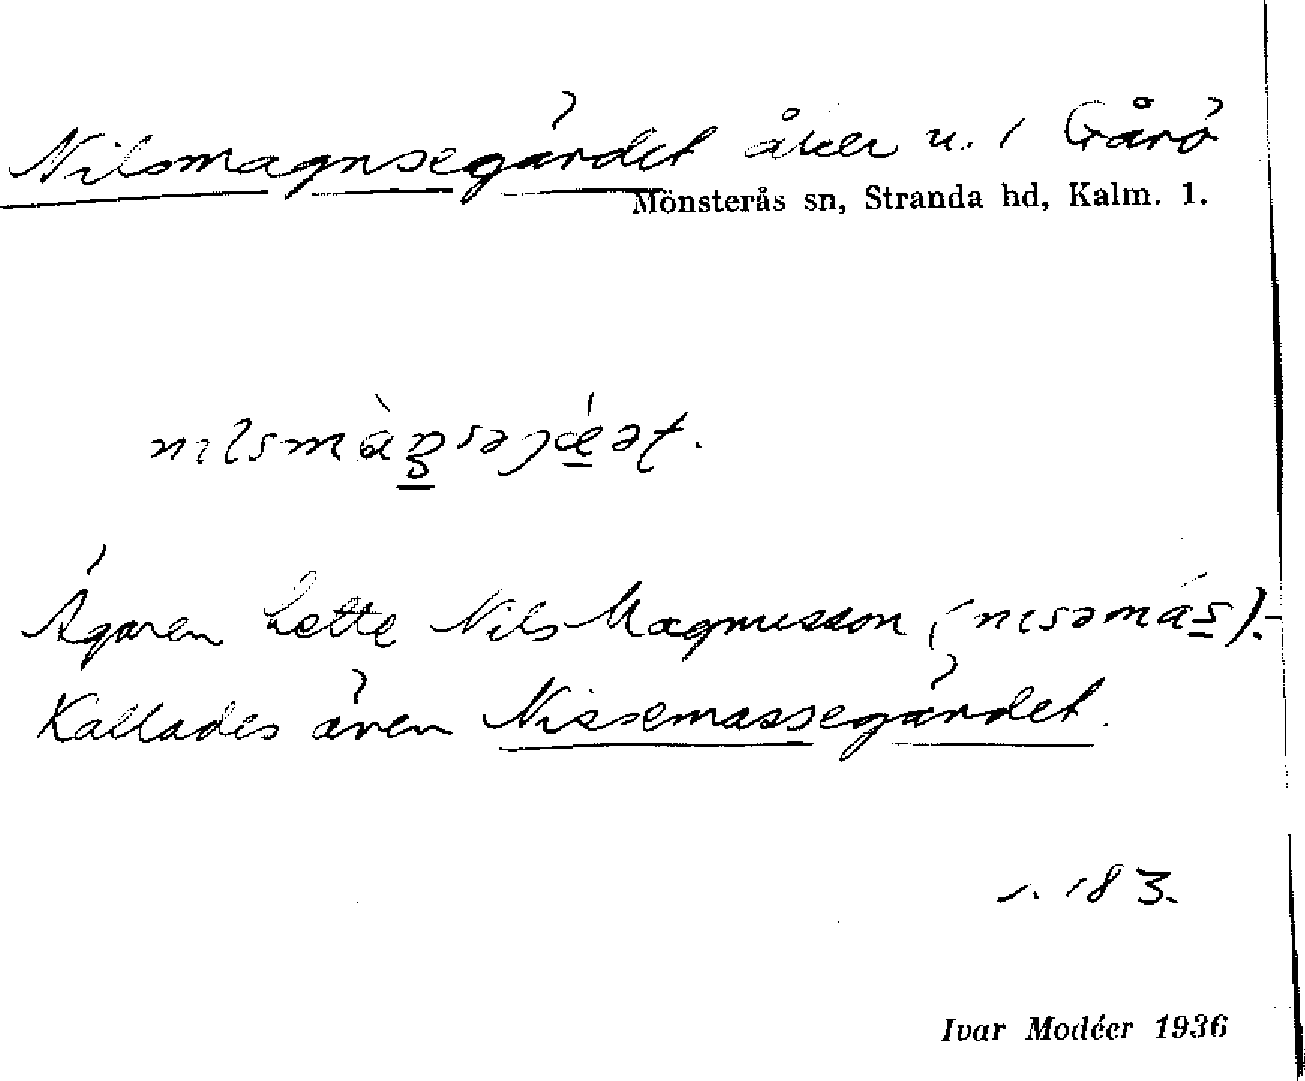 Nilsmagnsegärdet åker u. 1 Gårö
Mönsterås sn, Stranda hd, Kalm. l.
Ägaren hette Nils Magnusson
Kallades även Nissemassegärdet.
s. 183.
Ivar Modéer 1936